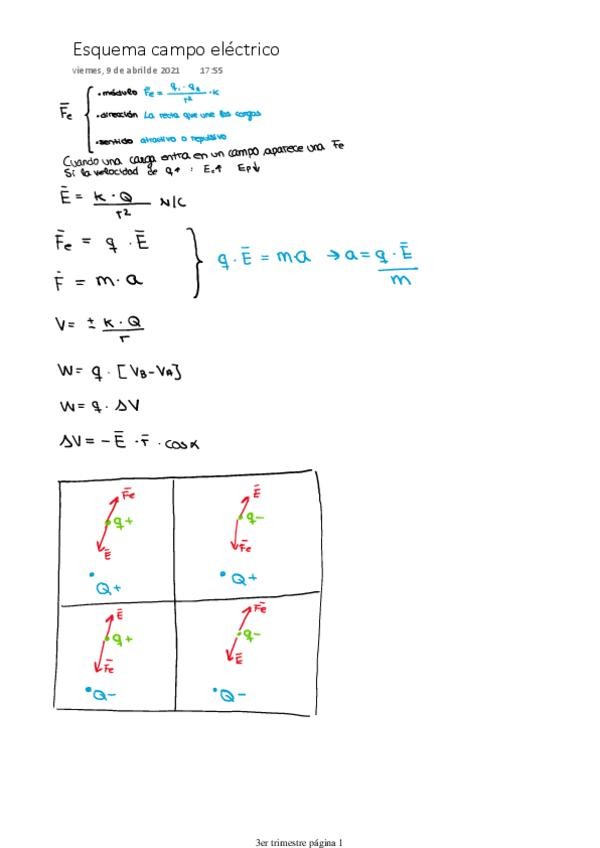 Esquema campo eléctrico
viernes, 9 de abril de 2021 17:55
F̄e
• módulo F̄e = q₁ · q₂ / r² · K
• dirección La recta que une las cargas
• sentido atractivo o repulsivo
Cuando una carga entra en un campo aparece una Fe
Si la velocidad de q+ : Ec↑ Ep↓
Ē = K · Q / r² N/C
F̄e = q · Ē
F̄ = m · a
q · Ē = m·a → a = q · Ē / m
V = ± K · Q / r
W = q · [VB – VA]
W = q · ΔV
ΔV = – Ē · r̄ · cosα
F̄e q+ Ē Q+
Ē q– F̄e Q+
Ē q+ F̄e Q–
F̄e q– Ē Q–
3er trimestre página 1